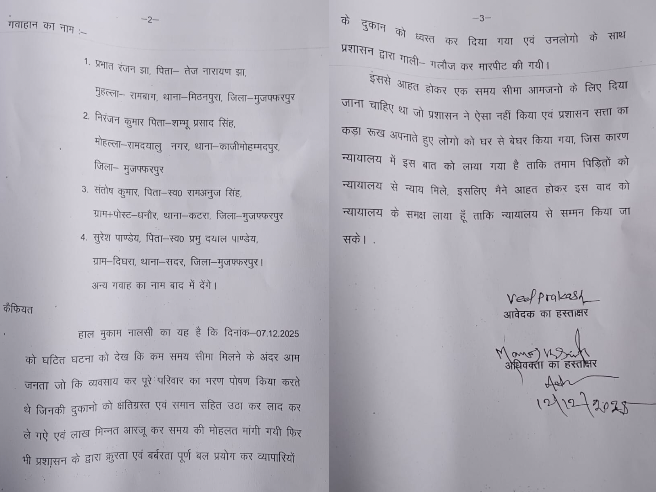 –2–
गवाहान का नाम :–
1. प्रभात रंजन झा, पिता– तेज नारायण झा,
मुहल्ला– रामबाग, थाना–मिठनपुरा, जिला–मुजफ्फरपुर
2. निरंजन कुमार पिता–शम्भू प्रसाद सिंह,
मोहल्ला–रामदयालु नगर, थाना–काजीमोहम्मदपुर,
जिला– मुजफ्फरपुर
3. संतोष कुमार, पिता–स्व0 रामअनुज सिंह,
ग्राम+पोस्ट–धनौर, थाना–कटरा, जिला–मुजफ्फरपुर
4. सुरेश पाण्डेय, पिता–स्व0 प्रभु दयाल पाण्डेय,
ग्राम–दिघरा, थाना–सदर, जिला–मुजफ्फरपुर।
अन्य गवाह का नाम बाद में देंगे।
कैफियत
हाल मुकाम नालसी का यह है कि दिनांक–07.12.2025
को घटित घटना को देख कि कम समय सीमा मिलने के अंदर आम
जनता जो कि व्यवसाय कर पूरे परिवार का भरण पोषण किया करते
थे जिनकी दुकानो को क्षतिग्रस्त एवं समान सहित उठा कर लाद कर
ले गऐ एवं लाख मिन्नत आरजू कर समय की मोहलत मांगी गयी फिर
भी प्रशासन के द्वारा क्रुरता एवं बर्बरता पूर्ण बल प्रयोग कर व्यापारियों
–3–
के दुकान को ध्वस्त कर दिया गया एवं उनलोगो के साथ
प्रशासन द्वारा गाली– गलौज कर मारपीट की गयी।
इससे आहत होकर एक समय सीमा आमजनो के लिए दिया
जाना चाहिए था जो प्रशासन ने ऐसा नहीं किया एवं प्रशासन सत्ता का
कडा रूख अपनाते हुए लोगो को घर से बेघर किया गया, जिस कारण
न्यायालय में इस बात को लाया गया है ताकि तमाम पिड़ितों को
न्यायालय से न्याय मिले, इसलिए मैने आहत होकर इस वाद को
न्यायालय के समक्ष लाया हूँ ताकि न्यायालय से सम्मन किया जा
सके।
Ved Prakash
आवेदक का हस्ताक्षर
Manoj Kr Singh
अधिवक्ता का हस्ताक्षर
12/12/2025